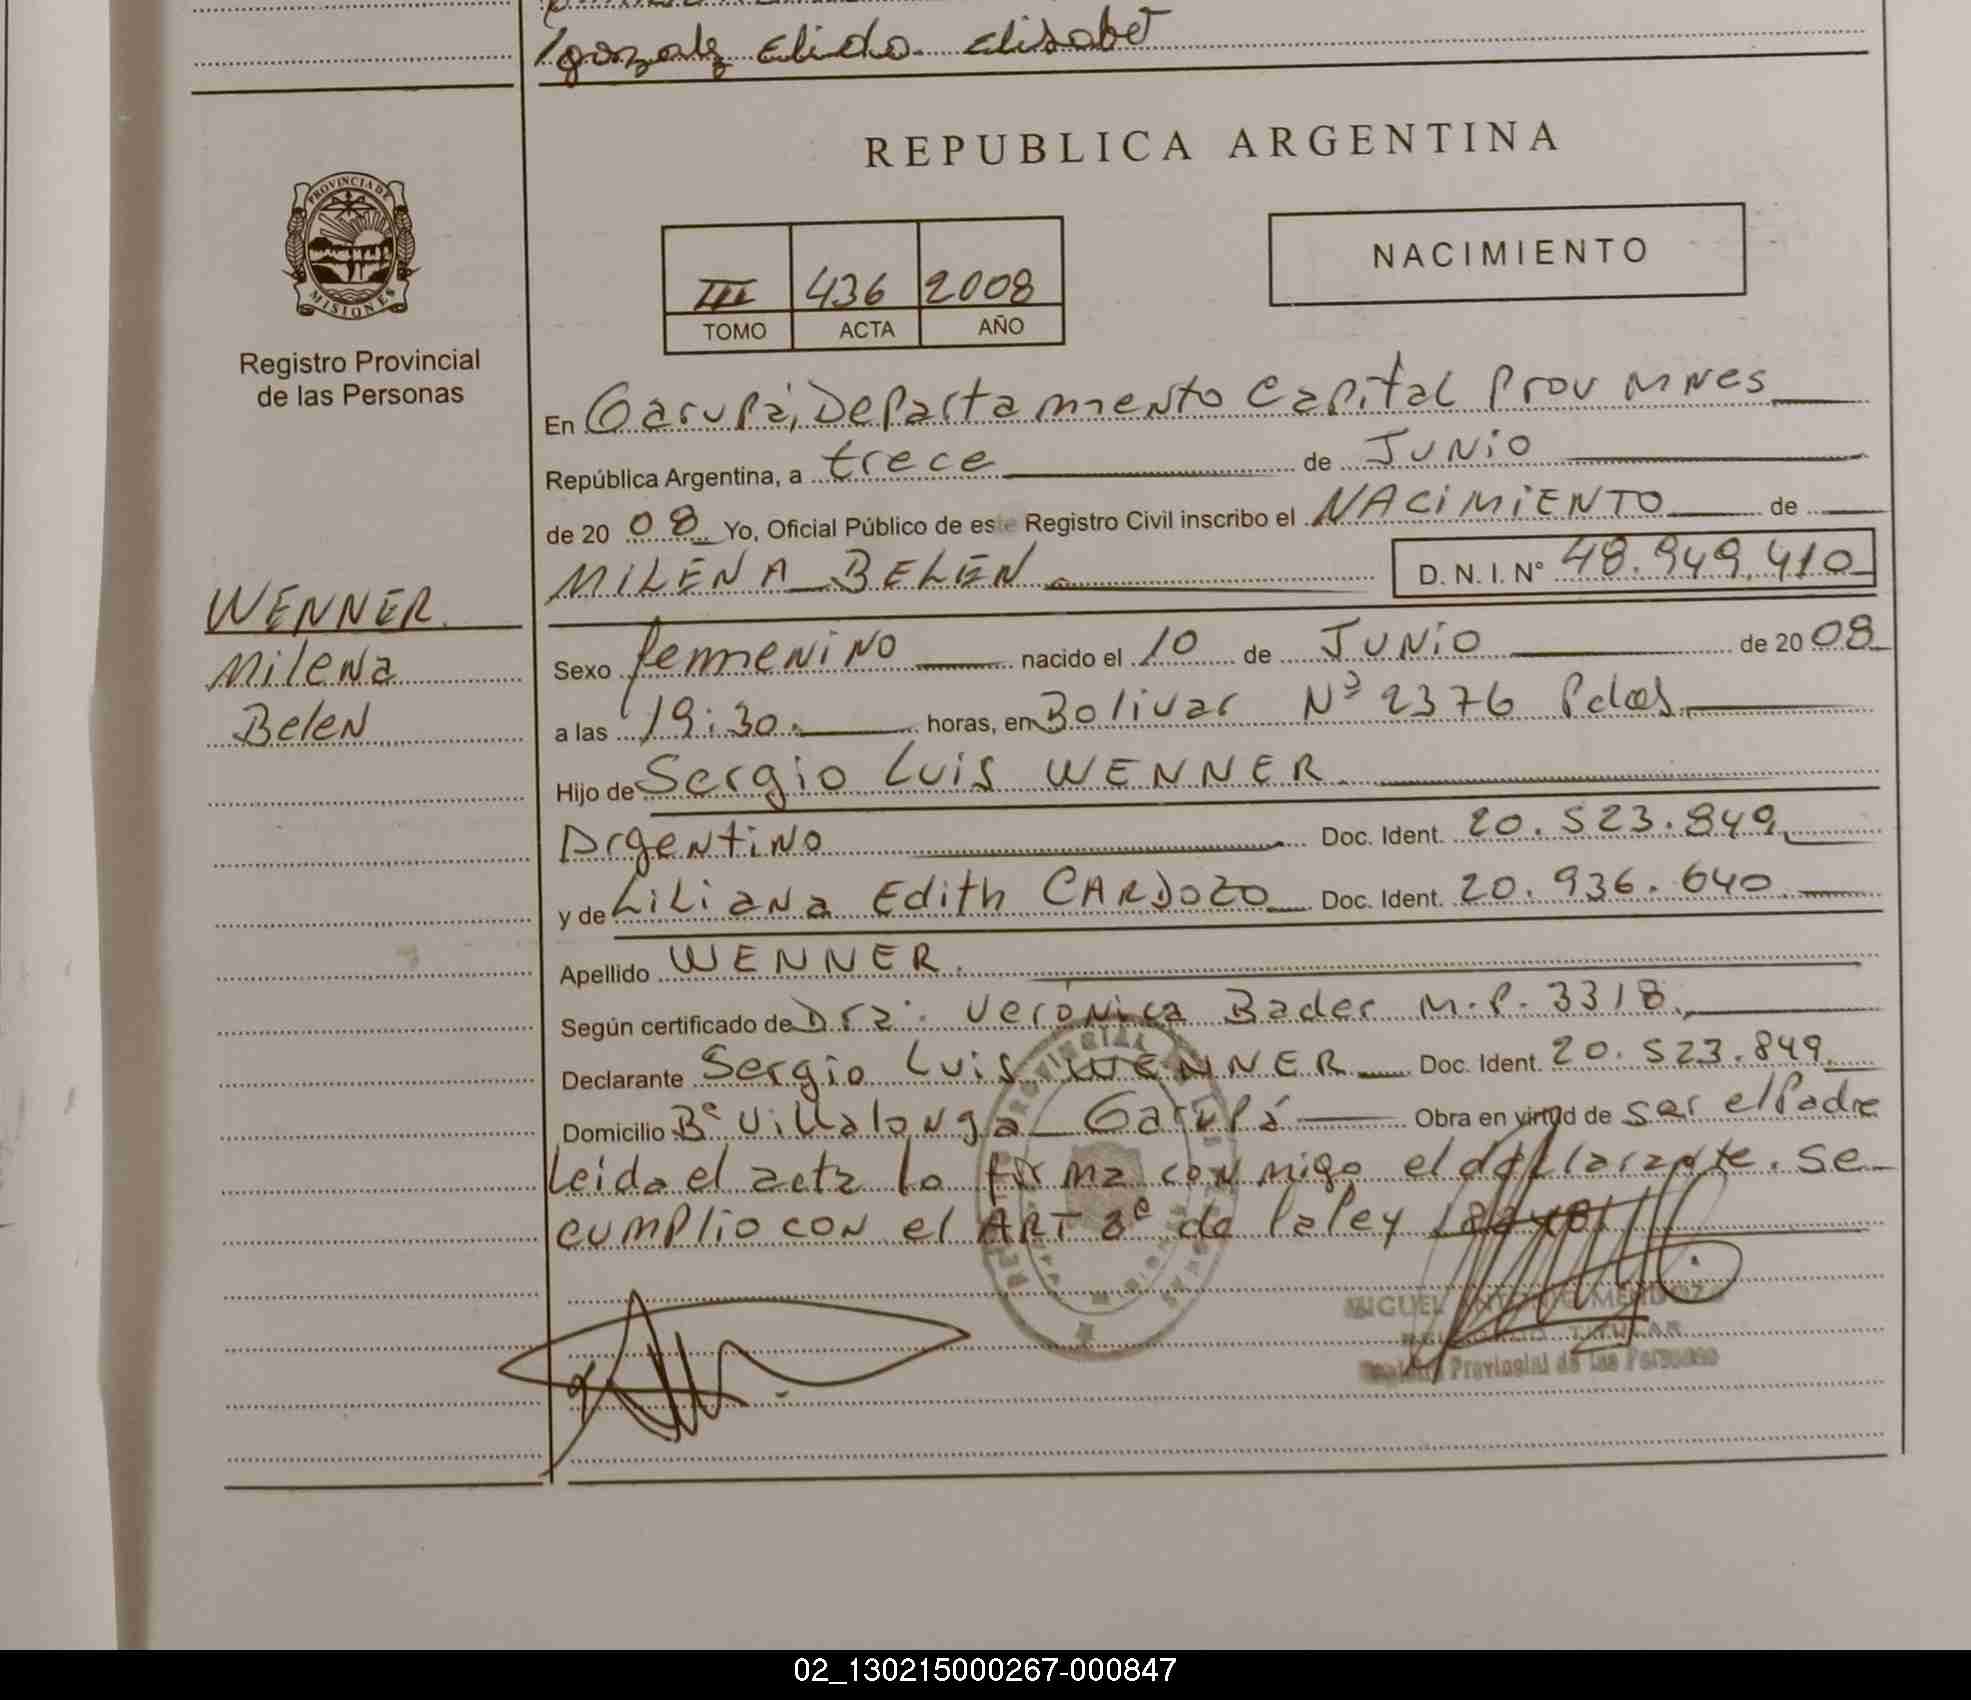 gonzalez Elida Elisabet
REPUBLICA ARGENTINA
PROVINCIA DE
MISIONES
Registro Provincial
de las Personas
NACIMIENTO
III 436 2008
TOMO ACTA AÑO
En Garupá, Departamento Capital Prov Mnes
República Argentina, a trece de Junio
de 2008 Yo, Oficial Público de este Registro Civil inscribo el NACIMIENTO de
MILENA BELEN D. N. I. Nº 48.949.410
WENNER
Milena
Belen
Sexo femenino nacido el 10 de Junio de 2008
a las 19:30 horas, en Bolivar Nº 2376 Pdas
Hijo de Sergio Luis WENNER
Argentino Doc. Ident. 20.523.849
y de Liliana Edith CARDOZO Doc. Ident. 20.936.640
Apellido WENNER
Según certificado de Dra: Verónica Bader M.P. 3318
Declarante Sergio Luis WENNER Doc. Ident. 20.523.849
Domicilio Bº Villalonga Garupá Obra en virtud de ser el Padre
Leida el acta la firma conmigo el declarante. Se
cumplio con el ART 8º de la ley
MIGUEL ANTONIO MENDOZA
TITULAR
Registro Provincial de las Personas
02_130215000267-000847